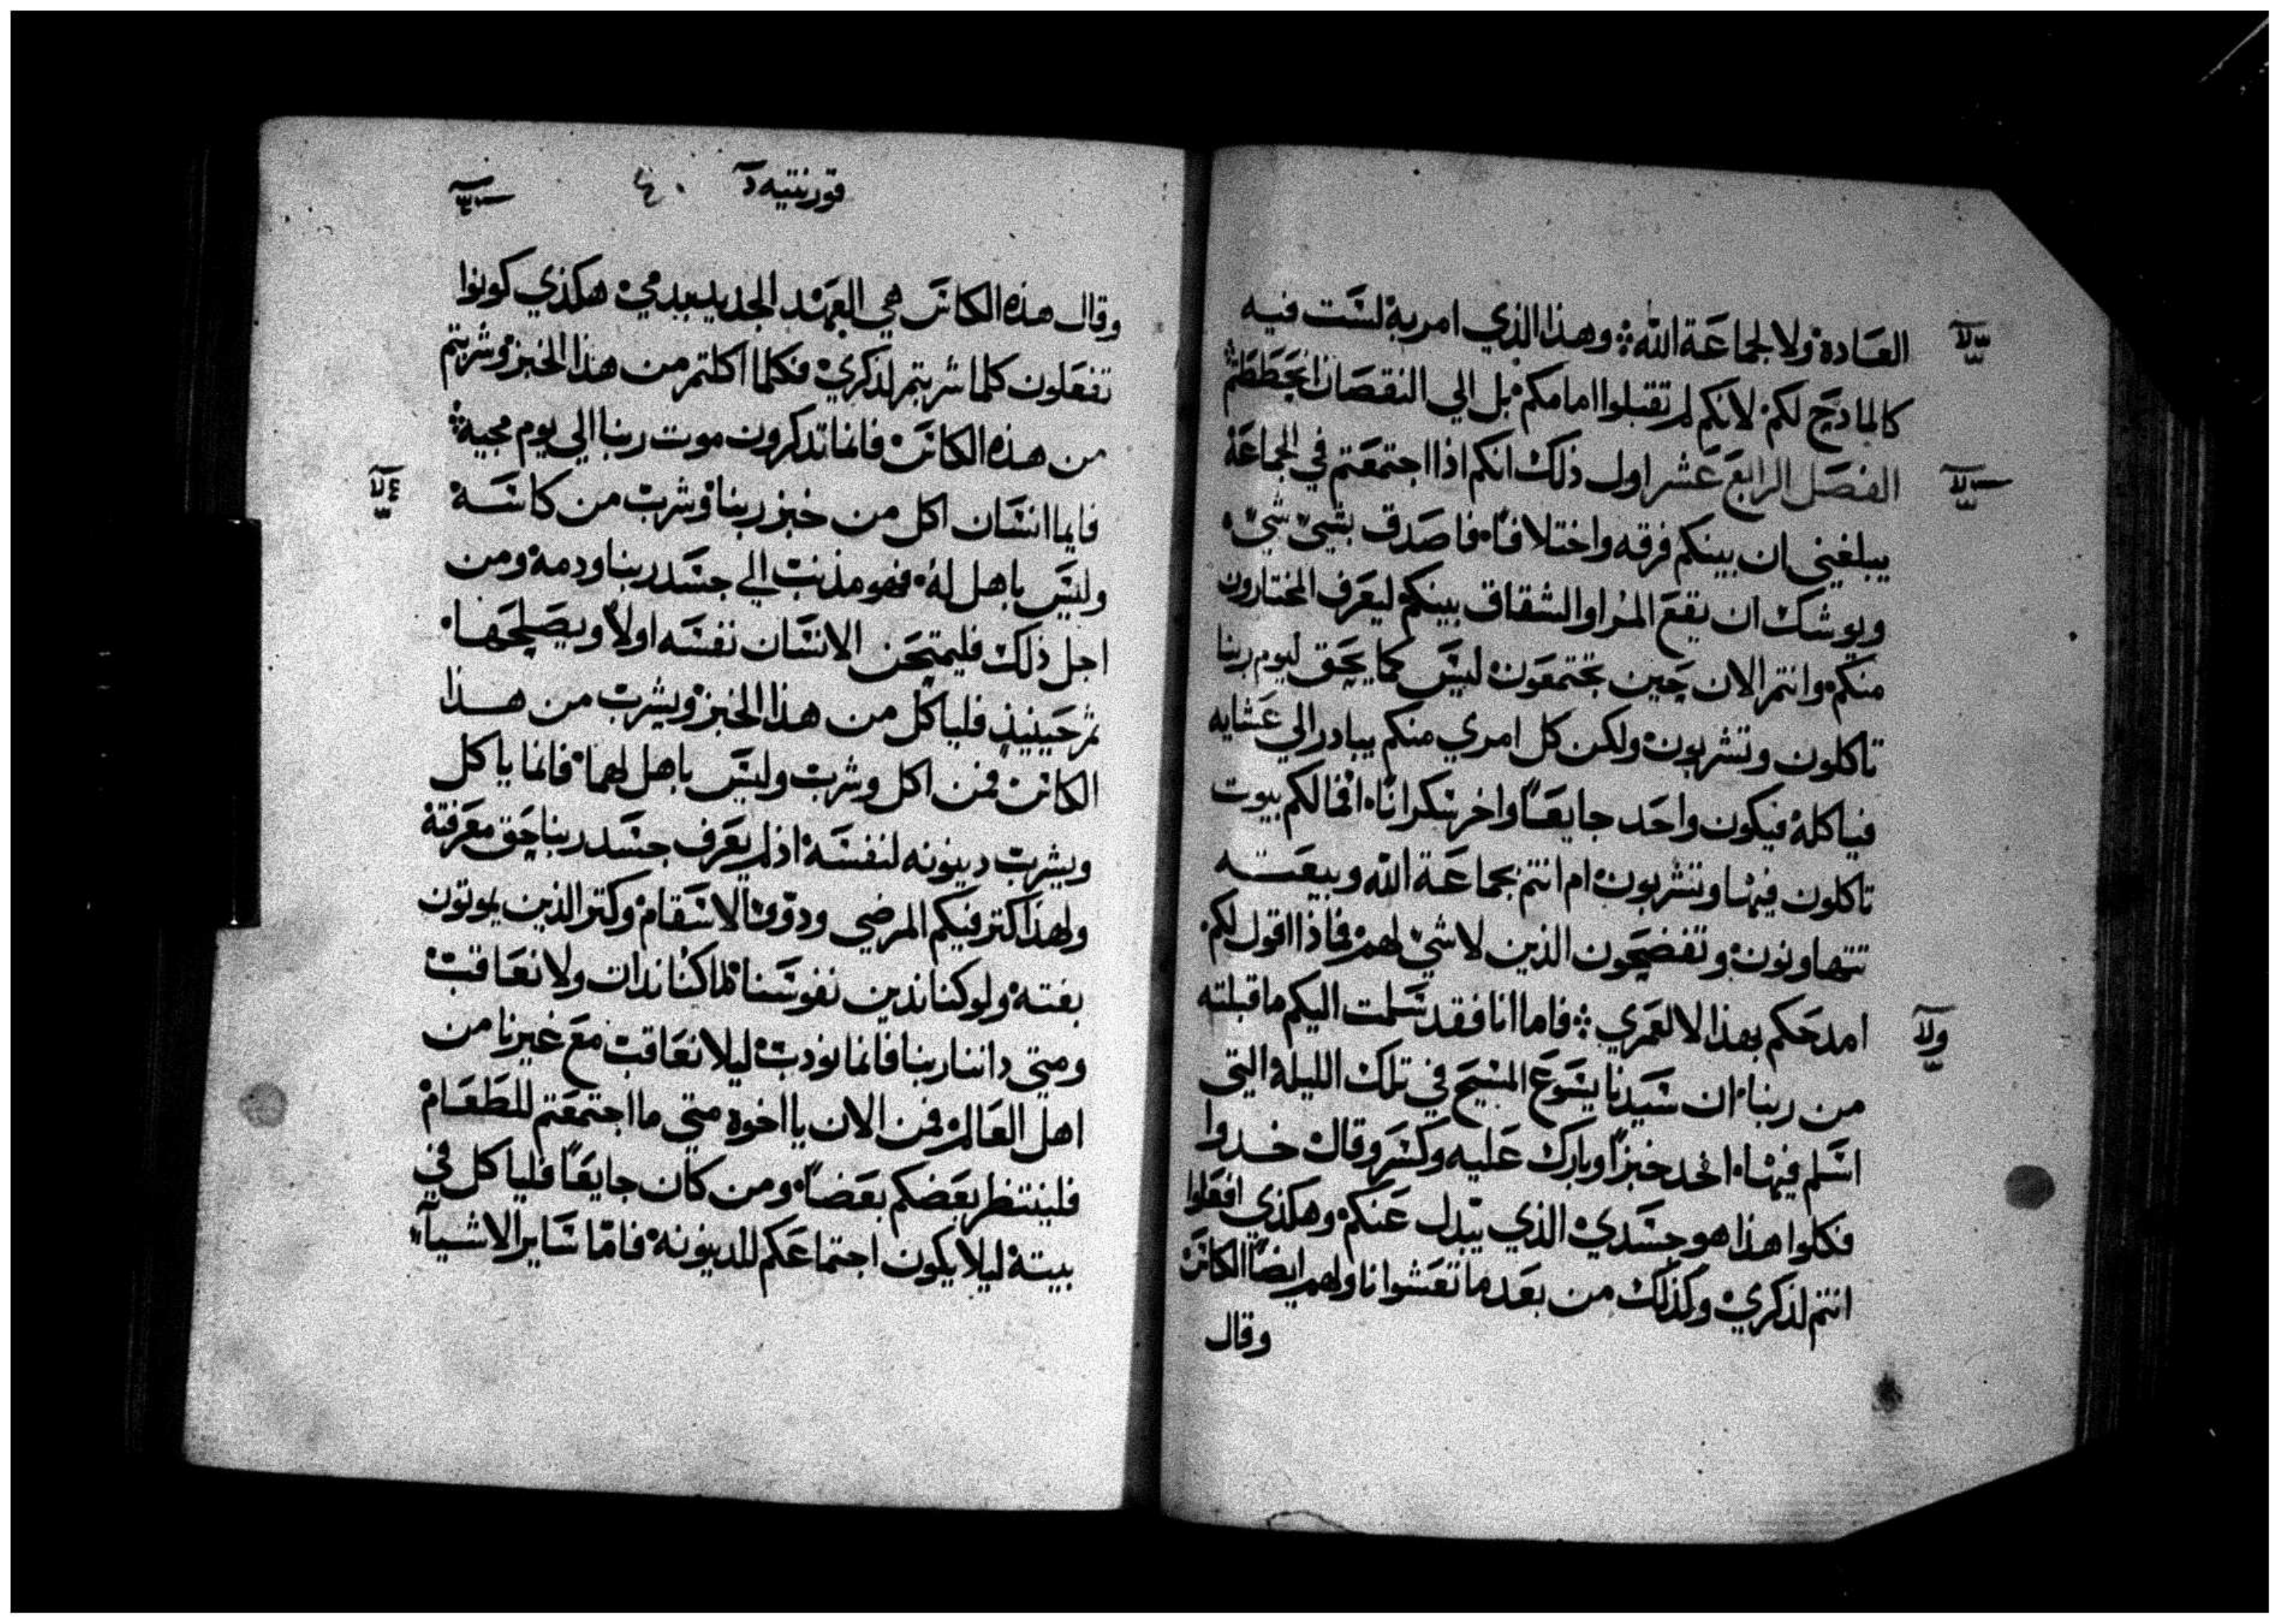 العادة ولا لجماعة الله ؞ وهذا الذي امر به لست فيه
كالمادح لكم لانكم لم تقبلوا امامكم بل الي النقصان انحططتم
الفصل الرابع عشر اول ذلك انكم اذا اجتمعتم في الجماعة
يبلغني ان بينكم فرقه واختلافا فاصدق بشي شي
ويوشك ان يقع المرا والشقاق بينكم ليعرف المختارون
منكم وانتم الان حين تجتمعون ليس كما يحق ليوم ربنا
تاكلون وتشربون ولكن كل امري منكم يبادر الي عشايه
فياكله فيكون واحد جايعًا واخر سكرانًا افما لكم بيوت
تاكلون فيها وتشربون ام انتم بجماعة الله وبيعته
تتهاونون وتفضحون الذين لا شي لهم فماذا اقول لكم
امدحكم بهذا لا لعمري ؞ فاما انا فقد سلمت اليكم ما قبلته
من ربنا ان سيدنا يسوع المسيح في تلك الليلة التي
اسلم فيها اخد خبزًا وبارك عليه وكسر وقال خدوا
فكلوا هذا هو جسدي الذي يبدل عنكم وهكذي افعلوا
انتم لذكري وكذلك من بعد ما تعشوا ناولهم ايضًا الكاس
وقال
قورنتيه
وقال هذه الكاس هي العهد الجديد بدمي هكذي كونوا
تفعلون كلما شربتم لذكري فكلما اكلتم من هذا الخبز وشربتم
من هذه الكاس فانما تدكرون موت ربنا الي يوم مجيه ؞
فايما انسان اكل من خبز ربنا وشرب من كاسه
وليس باهل له فهو مذنب الي جسد ربنا ودمه ومن
اجل ذلك فليمتحن الانسان نفسه اولًا ويصلحها
ثم حينيذ فلياكل من هذا الخبز ويشرب من هذا
الكاس فمن اكل وشرب وليس باهل لهما فانما ياكل
ويشرب دينونه لنفسه اذ لم يعرف جسد ربنا حق معرفته
ولهذا كتر فيكم المرضي وذووا الاسقام وكتر الذين يموتون
بغتة ولو كنا ندين نفوسنا لما كنا ندان ولا نعاقب
ومتي داننا ربنا فانما نودب ليلا نعاقب مع غيرنا من
اهل العالم فمن الان يا اخوه متي ما اجتمعتم للطعام
فلينتظر بعضكم بعضًا ومن كان جايعًا فلياكل في
بيته ليلا يكون اجتماعكم للدينونه فامّا ساير الاشيآ